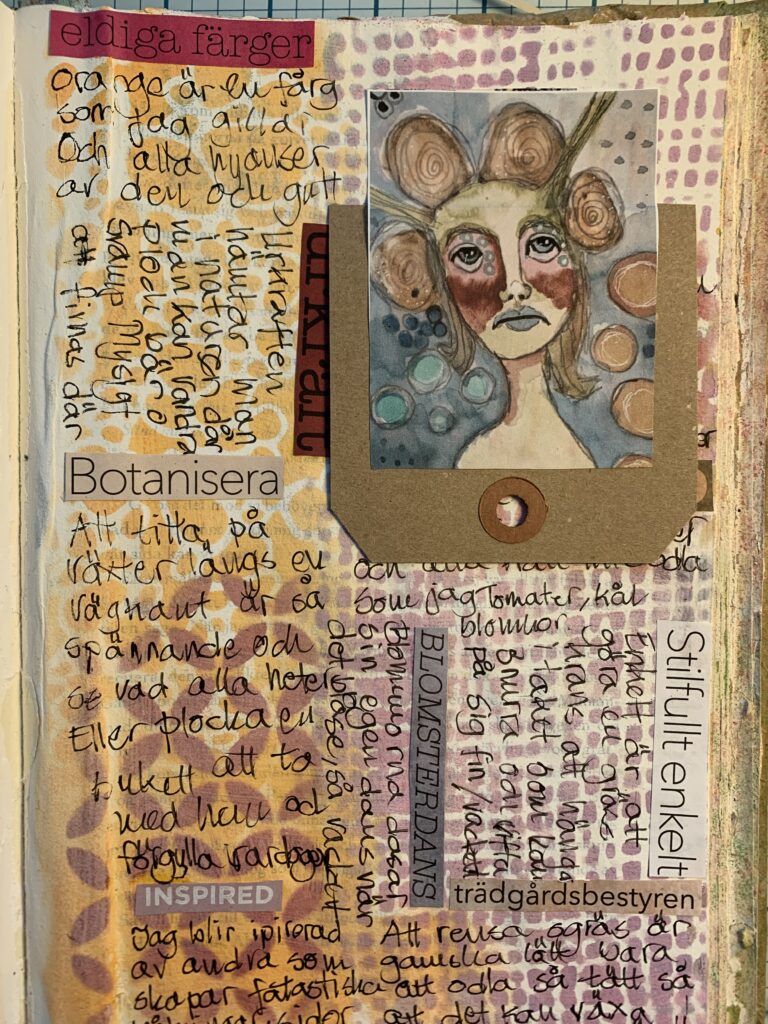 eldiga färger
orange är en färg
som jag gillar
Och alla nyanser
av den och gult
urkraft
Urkraften
hämtar man
i naturen där
man kan vandra
plocka bär o
svamp Mysigt
att finnas där
Botanisera
Att titta på
växter längs en
vägkant är så
spännande och
se vad alla heter
Eller plocka en
bukett att ta
med hem och
förgylla vardagen
INSPIRED
Jag blir ipirerad
av andra som
skapar fatastiska
och
odla
som jag Tomater, kål
blommor
Stilfullt enkelt
Enkelt är att
göra en gräs
krans att hänga
i taket som kan
snurra och
på sig fin
BLOMSTERDANS
Blommorna dansar
sin egen dans när
det blåse, så vackert
trädgårdsbestyren
Att rensa ogräs är
ganska lätt bara
att odla så tätt så
att det kan växa